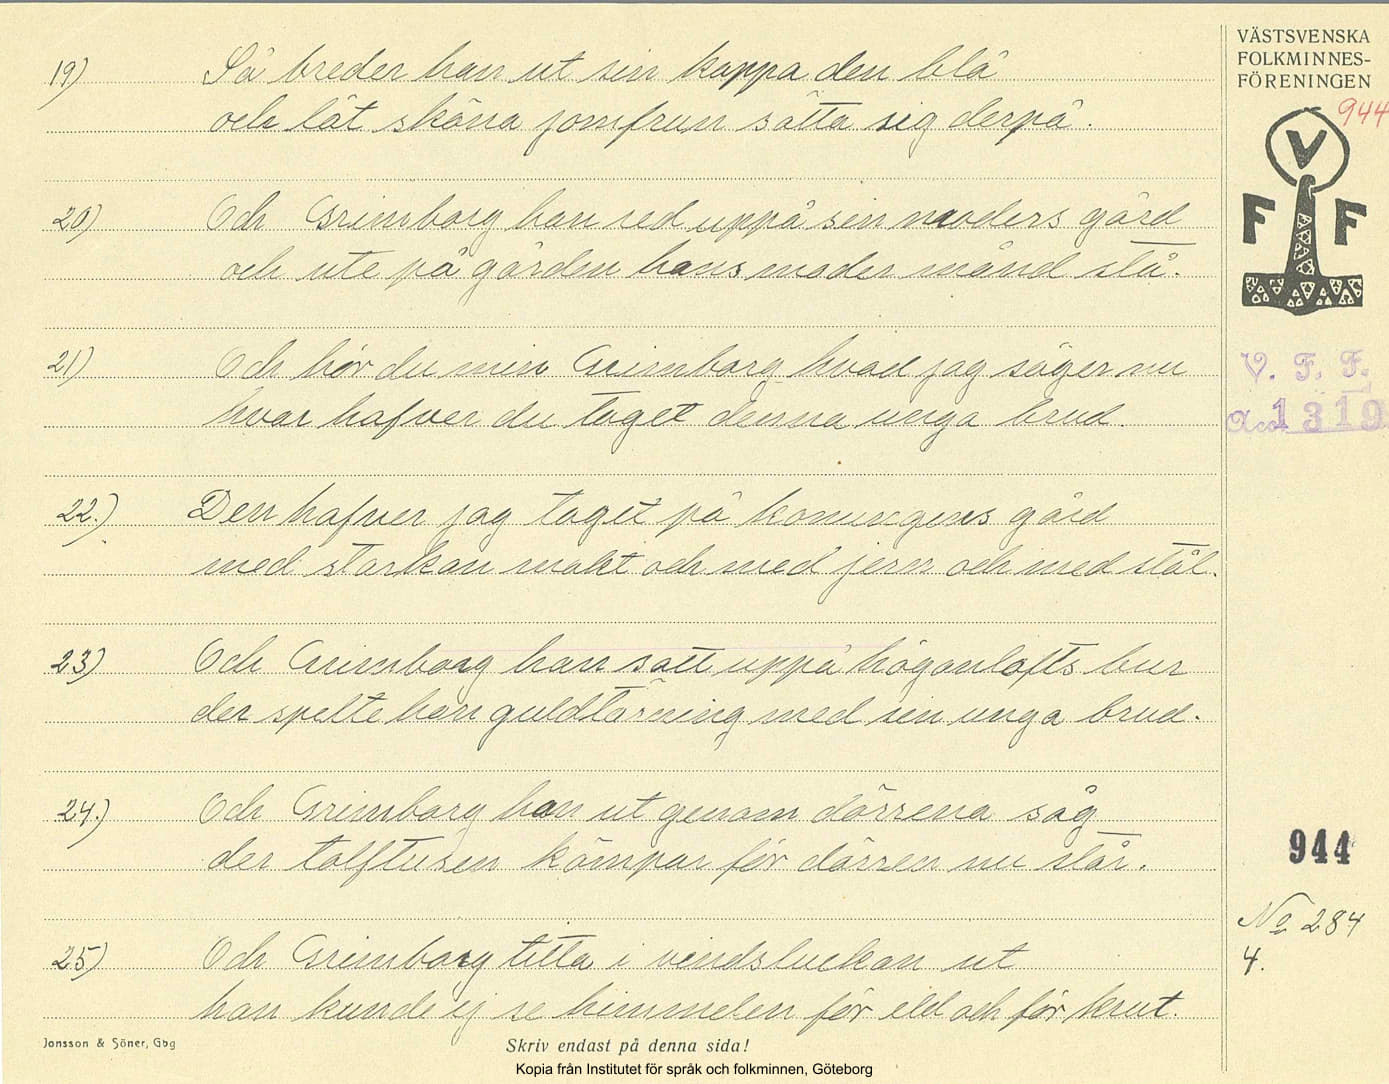 19) Så breder han ut sin kappa den blå
och lät sköna jomfrun sätta sig derpå.
20) Och Grimborg han red uppå sin moders gård
och ute på gården hans moder månd stå.
21) Och hör du min Grimborg hvad jag säger nu
hvar hafver du taget denna unga brud.
22.) Den hafver jag taget på konungens gård
med starkan makt och med jern och med stål.
23) Och Grimborg han satt uppå höganlofts bur
der spelte han guldtärning med sin unga brud.
24.) Och Grimborg han ut genom dörrena såg
der tolftusen kämpar för dörren nu står.
25) Och Grimborg titta i vindsluckan ut
han kunde ej se himmelen för eld och för krut.
Jonsson & Söner, Gbg
Skriv endast på denna sida!
Kopia från Institutet för språk och folkminnen, Göteborg
VÄSTSVENSKA
FOLKMINNES-
FÖRENINGEN
944
V
F F
V. F. F.
Acc 1319
944
No 284
4.